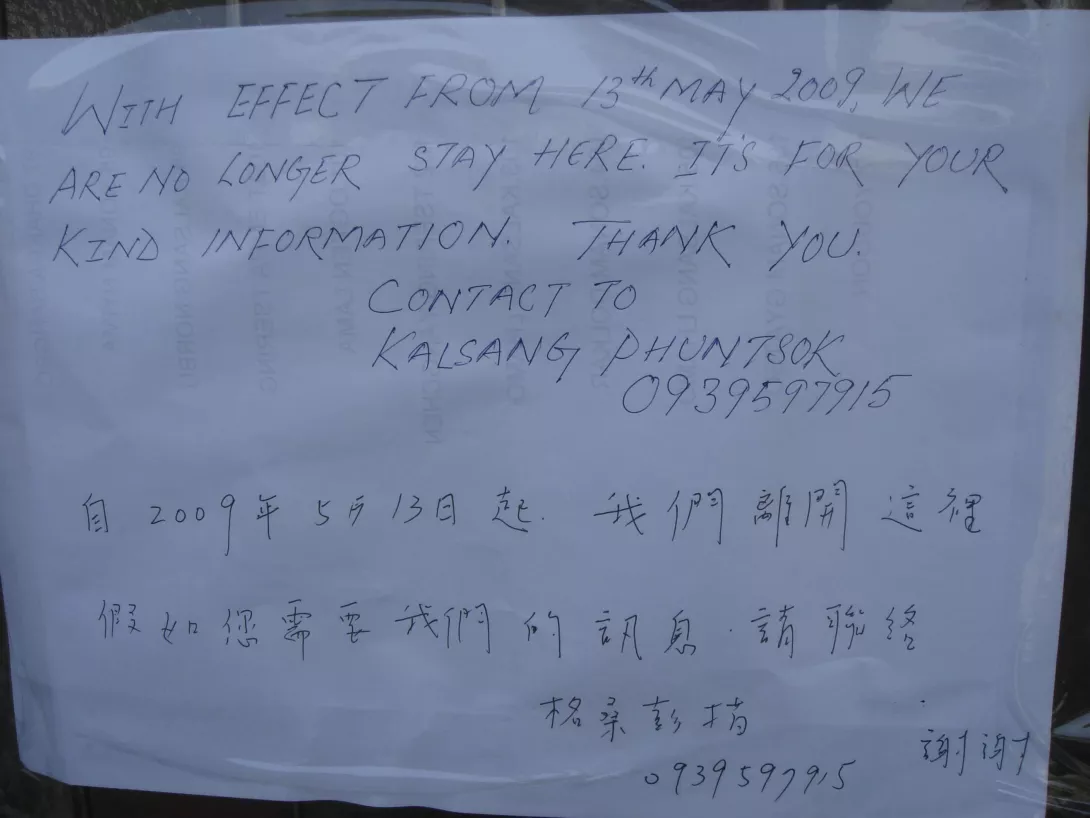 WITH EFFECT FROM 13th MAY 2009, WE
ARE NO LONGER STAY HERE. IT'S FOR YOUR
KIND INFORMATION. THANK YOU.
CONTACT TO
KALSANG PHUNTSOK
0939597915
自 2009年 5月 13日 起. 我們離開 這裡
假如您需要我們的訊息. 請聯絡
格桑彭措
謝謝
0939597915